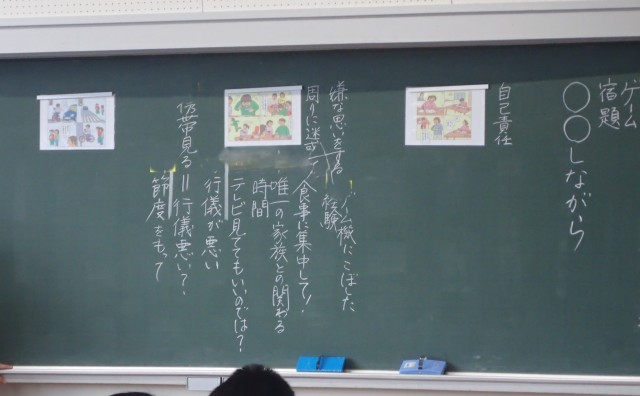 ゲーム
宿題
〇〇しながら
自己責任
嫌な思いをする
ゲーム機にこぼした
経験
周りに迷惑
食事に集中して!
唯一の家族との関わる
時間
テレビ見ててもいいのでは?
行儀が悪い
携帯見る=行儀悪い?
節度をもって